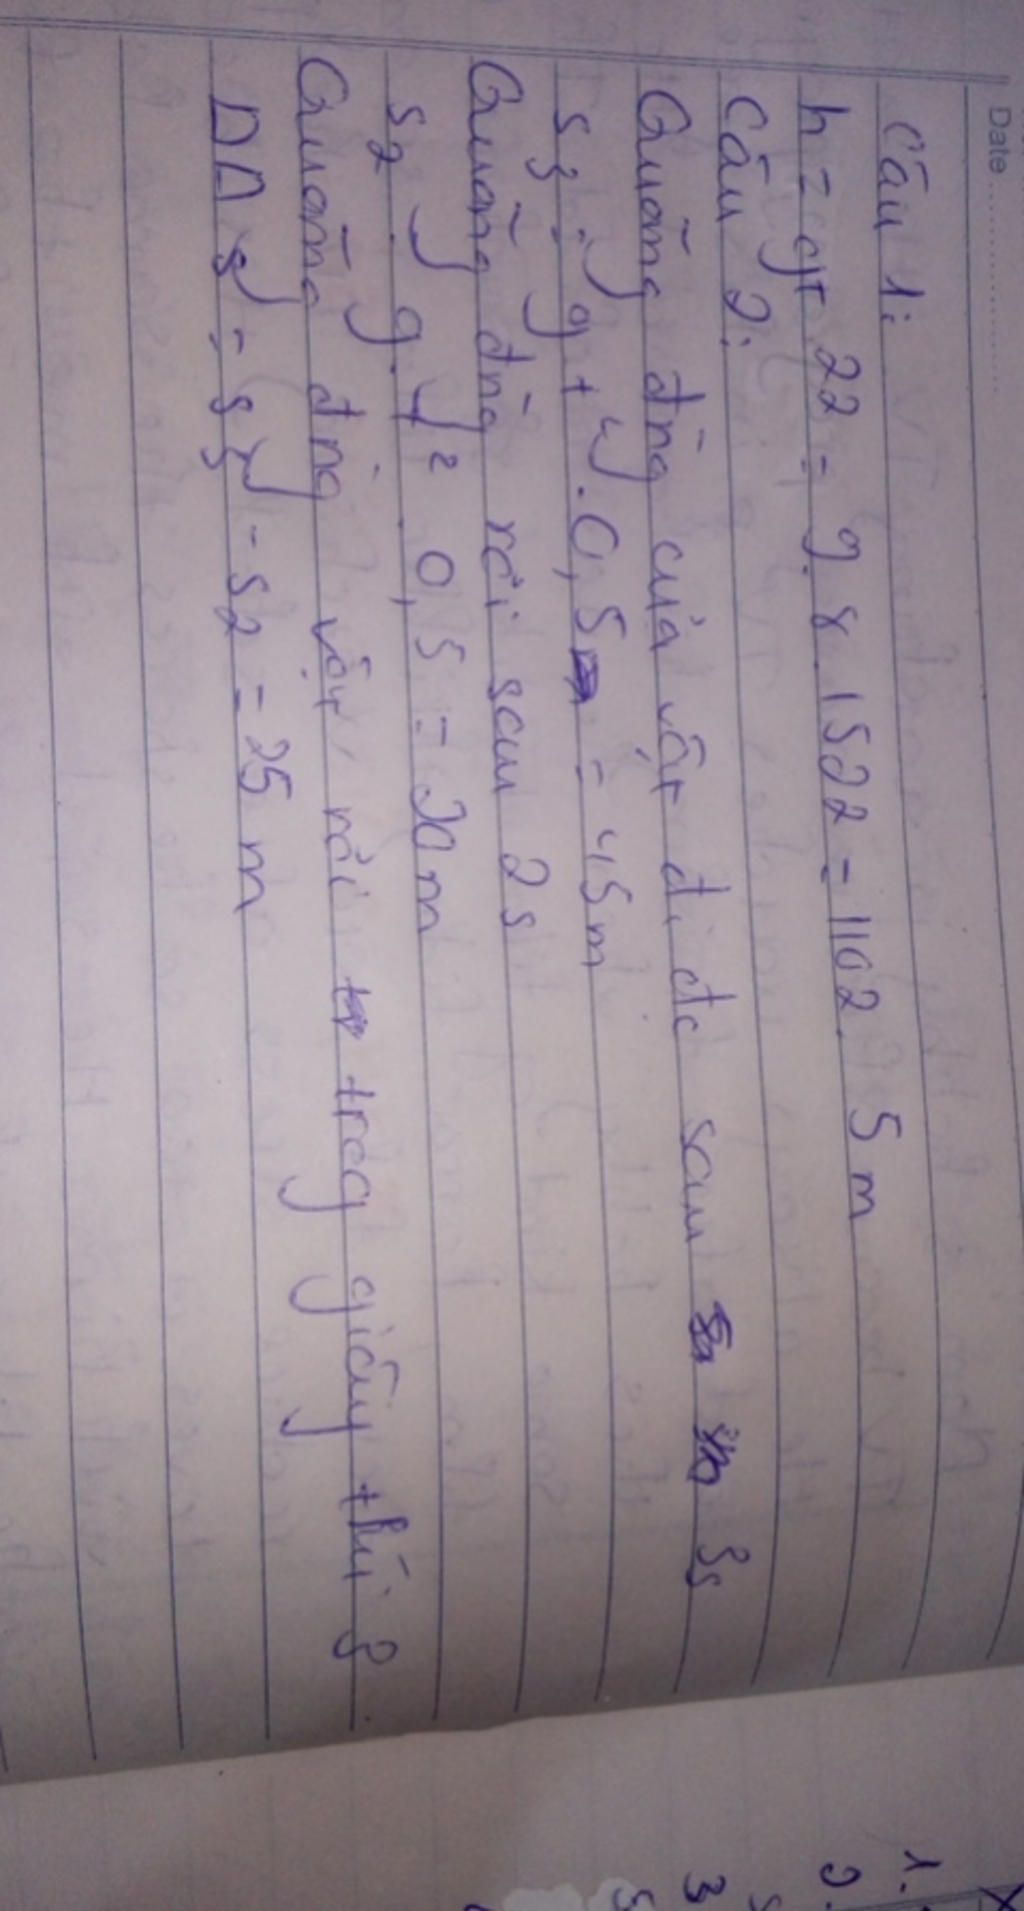 Date
Câu 1:
h = gt 22 = 9.8.1522 = 1102.5m
Câu 2:
Quãng đng của vật đi đc sau 3s
S3 = g + y.0,5 = 45m
Quãng đng rơi sau 2s
S2 y g. y² . 0,5 = 20m
Quãng đng vật rơi trog giây thứ 3
DD s y = s y - s2 = 25 m
1.
2.
3